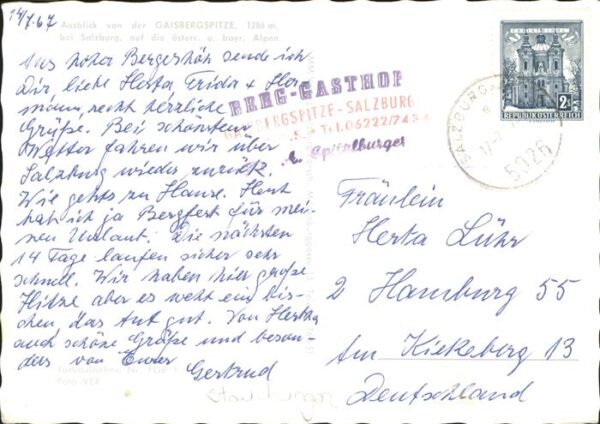 14/7.67
Ausblick von der GAISBERGSPITZE, 1286 m.
bei Salzburg, auf die österr. u. bayr. Alpen
Aus hoher Bergeshöh sende ich
Dir, liebe Herta, Frida + Her-
mann recht herzliche
Grüße. Bei schönstem
Wetter fahren wir über
Salzburg wieder zurück.
Wie gehts zu Hause. Heut
hab ich ja Bergfest für mei-
nen Urlaub. Die nächsten
14 Tage laufen sicher sehr
schnell. Wir haben hier große
Hitze aber es weht ein bis-
chen das tut gut. Von Hertha
auch schöne Grüße und beson-
ders von Eurer
Gertrud
BERG-GASTHOF
GAISBERGSPITZE-SALZBURG
Tel. 06222/743
A. Spitalburger
SALZBURG
5026
2 S
REPUBLIK ÖSTERREICH
Fräulein
Herta Lühr
2 Hamburg 55
Am Kiekeberg 13
Deutschland
Foto VEP